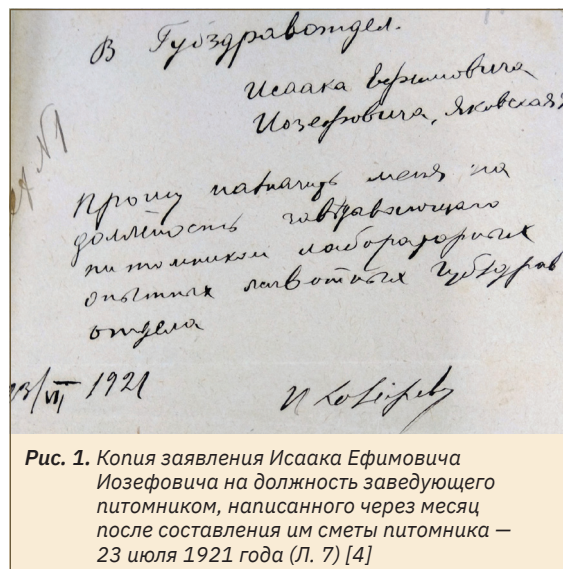 В Губздравотдел.
Исаака Ефимовича
Иозефовича, Яковская
№1
Прошу назначить меня на
должность заведывающего
питомником лабораторных
опытных животных Губздрав
отдела
23/VII 1921
Рис. 1. Копия заявления Исаака Ефимовича
Иозефовича на должность заведующего
питомником, написанного через месяц
после составления им сметы питомника —
23 июля 1921 года (Л. 7) [4]